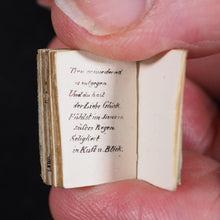 Treu
es entgegen
Und du hast
der Liebe Glück.
Fühlst im Innern
süsses Regen
Seligkeit
in Kuß u. Blick.